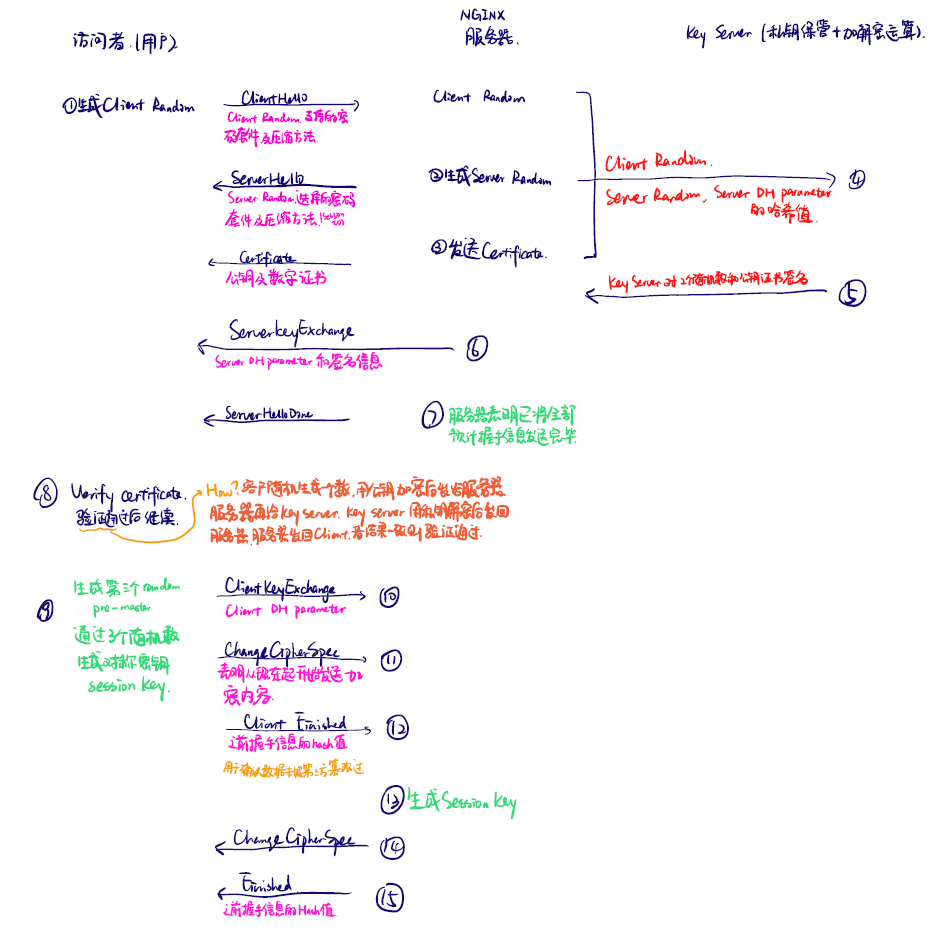 访问者(用户)
NGINX
服务器.
Key Server (私钥保管+加解密运算).
①生成Client Random
ClientHello
Client Random, 支持的密
码套件及压缩方法.
Client Random
ServerHello
Server Random, 选择的密码
套件及压缩方法,
②生成Server Random
Client Random.
Server Random, Server DH parameter
的哈希值.
④
Certificate
公钥及数字证书
③发送Certificate.
Key Server对2个随机数和公钥证书签名
⑤
ServerKeyExchange
Server DH parameter 和签名信息
⑥
ServerHelloDone
⑦ 服务器表明已将全部
预计握手信息发送完毕.
⑧ Verify certificate.
验证通过后继续.
How? 客户随机生成个数, 用公钥加密后发给服务器
服务器再给Key server. Key server 用私钥解密后发回
服务器, 服务器发回Client, 若结果一致则验证通过.
⑨ 生成第三个random
pre-master
通过3个随机数
生成对称密钥
session key.
ClientKeyExchange
Client DH parameter
⑩
ChangeCipherSpec
表明从现在起开始发送加
密内容.
⑪
Client Finished
之前握手信息的hash值
用于确认数据未被第三方篡改过
⑫
⑬ 生成Session Key
ChangeCipherSpec
⑭
Finished
之前握手信息的Hash值
⑮